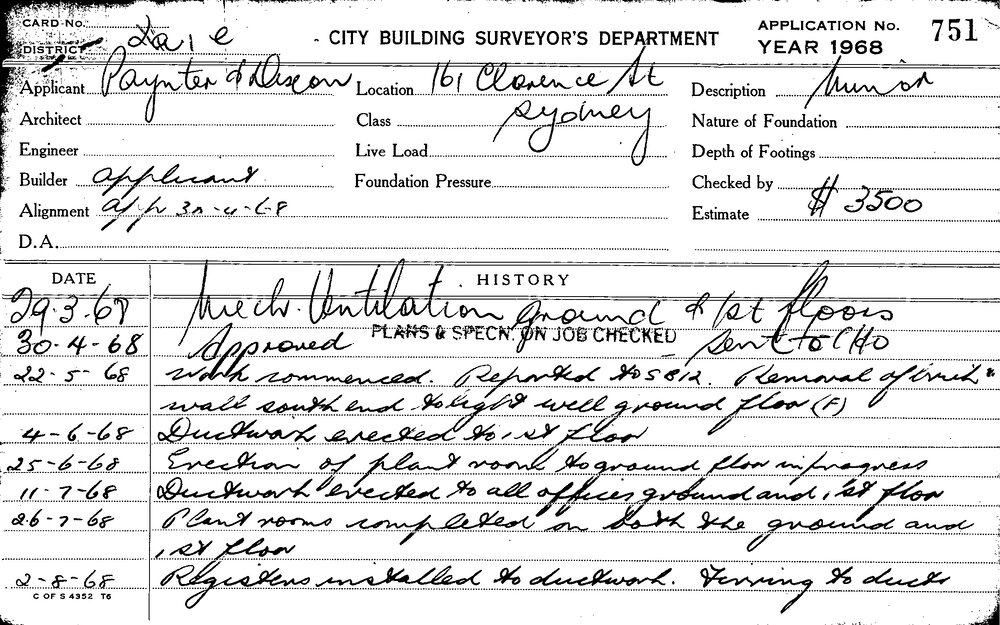 CARD No.
DISTRICT
CITY BUILDING SURVEYOR'S DEPARTMENT
APPLICATION No. 751
YEAR 1968
Applicant Paynter & Dixon Location 161 Clarence St Description Minor
Architect Class Sydney Nature of Foundation
Engineer Live Load Depth of Footings
Builder applicant Foundation Pressure Checked by
Alignment 30-4-68 Estimate $ 3500
D.A.
DATE HISTORY
29.3.68 Mech. Ventilation ground & 1st floors
PLANS & SPECN. ON JOB CHECKED
30-4-68 Approved Sent to CHO
22-5-68 Work commenced. Reported to S812. Removal of brick
wall south end to light well ground floor (F)
4-6-68 Ductwork erected to 1st floor
25-6-68 Erection of plant room to ground floor in progress
11-7-68 Ductwork erected to all offices ground and 1st floor
26-7-68 Plant rooms completed on both the ground and
1st floor
2-8-68 Registers installed to ductwork. Firring to ducts
C OF S 4352 T6